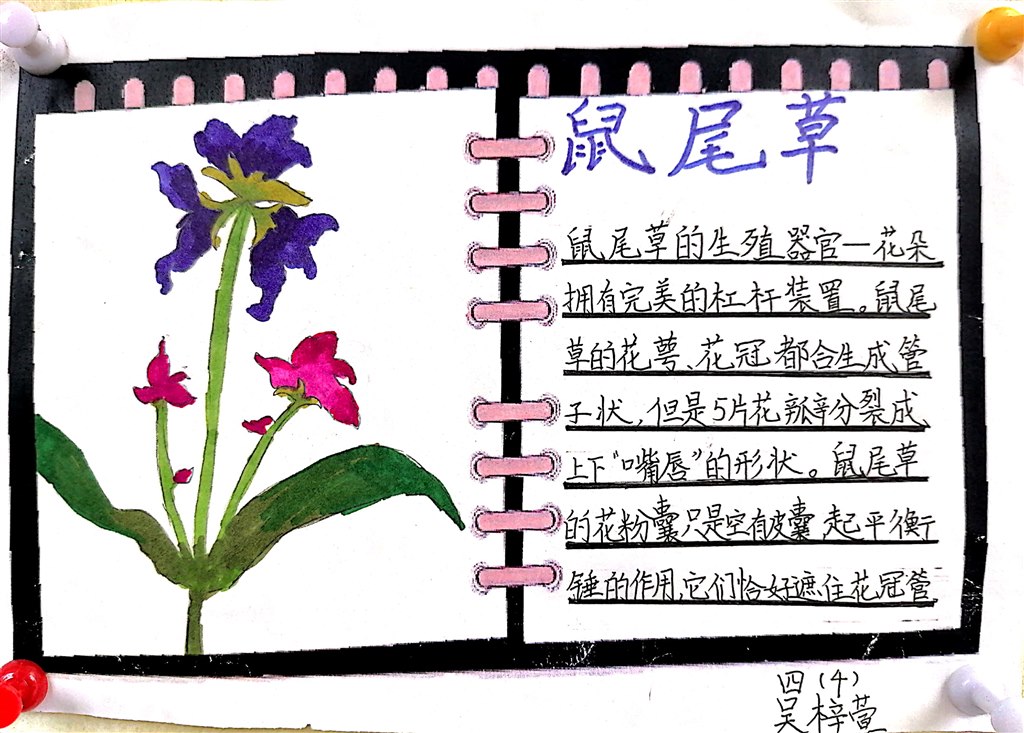 鼠尾草
鼠尾草的生殖器官一花朵
拥有完美的杠杆装置。鼠尾
草的花萼、花冠都合生成管
子状,但是5片花瓣分裂成
上下“嘴唇”的形状。鼠尾草
的花粉囊只是空有皮囊,起平衡
锤的作用,它们恰好遮住花冠管
四(4)
吴梓萱